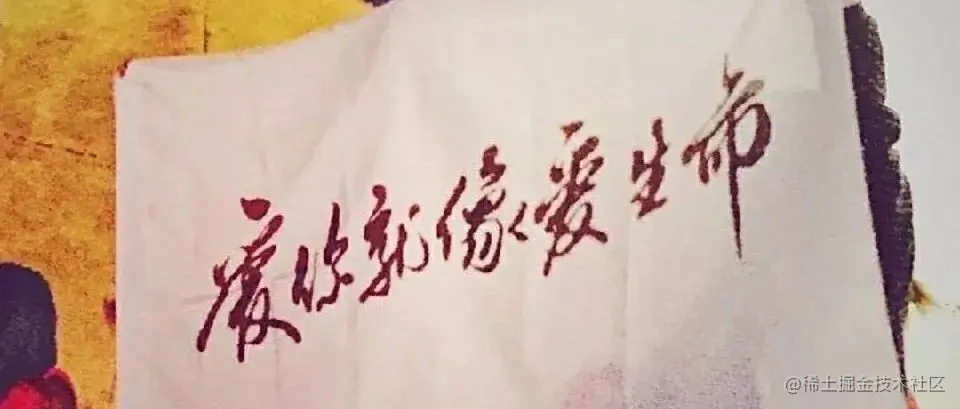 爱你就像爱生命
@稀土掘金技术社区